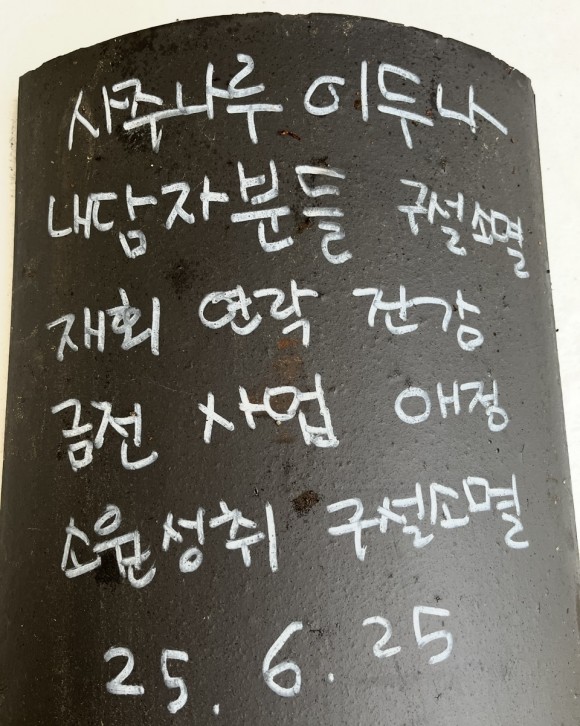 사주나루 이두나
내담자분들 구설소멸
재회 연락 건강
금전 사업 애정
소원성취 구설소멸
25. 6. 25